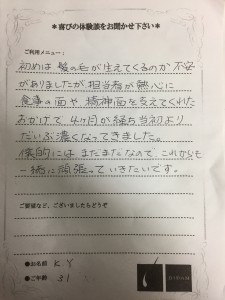 ＊喜びの体験談をお聞かせ下さい＊
ご利用メニュー:
初めは髪の毛が生えてくるのか不安
がありましたが担当者が熱心に
食事の面や精神面を支えてくれた
おかげで4カ月が経ち当初より
だいぶ濃くなってきました。
僕的にはまだまだなので、これからも
一緒に頑張っていきたいです。
ご要望など、ございましたらどうぞ
●お名前 K.Y
●ご年齢 31